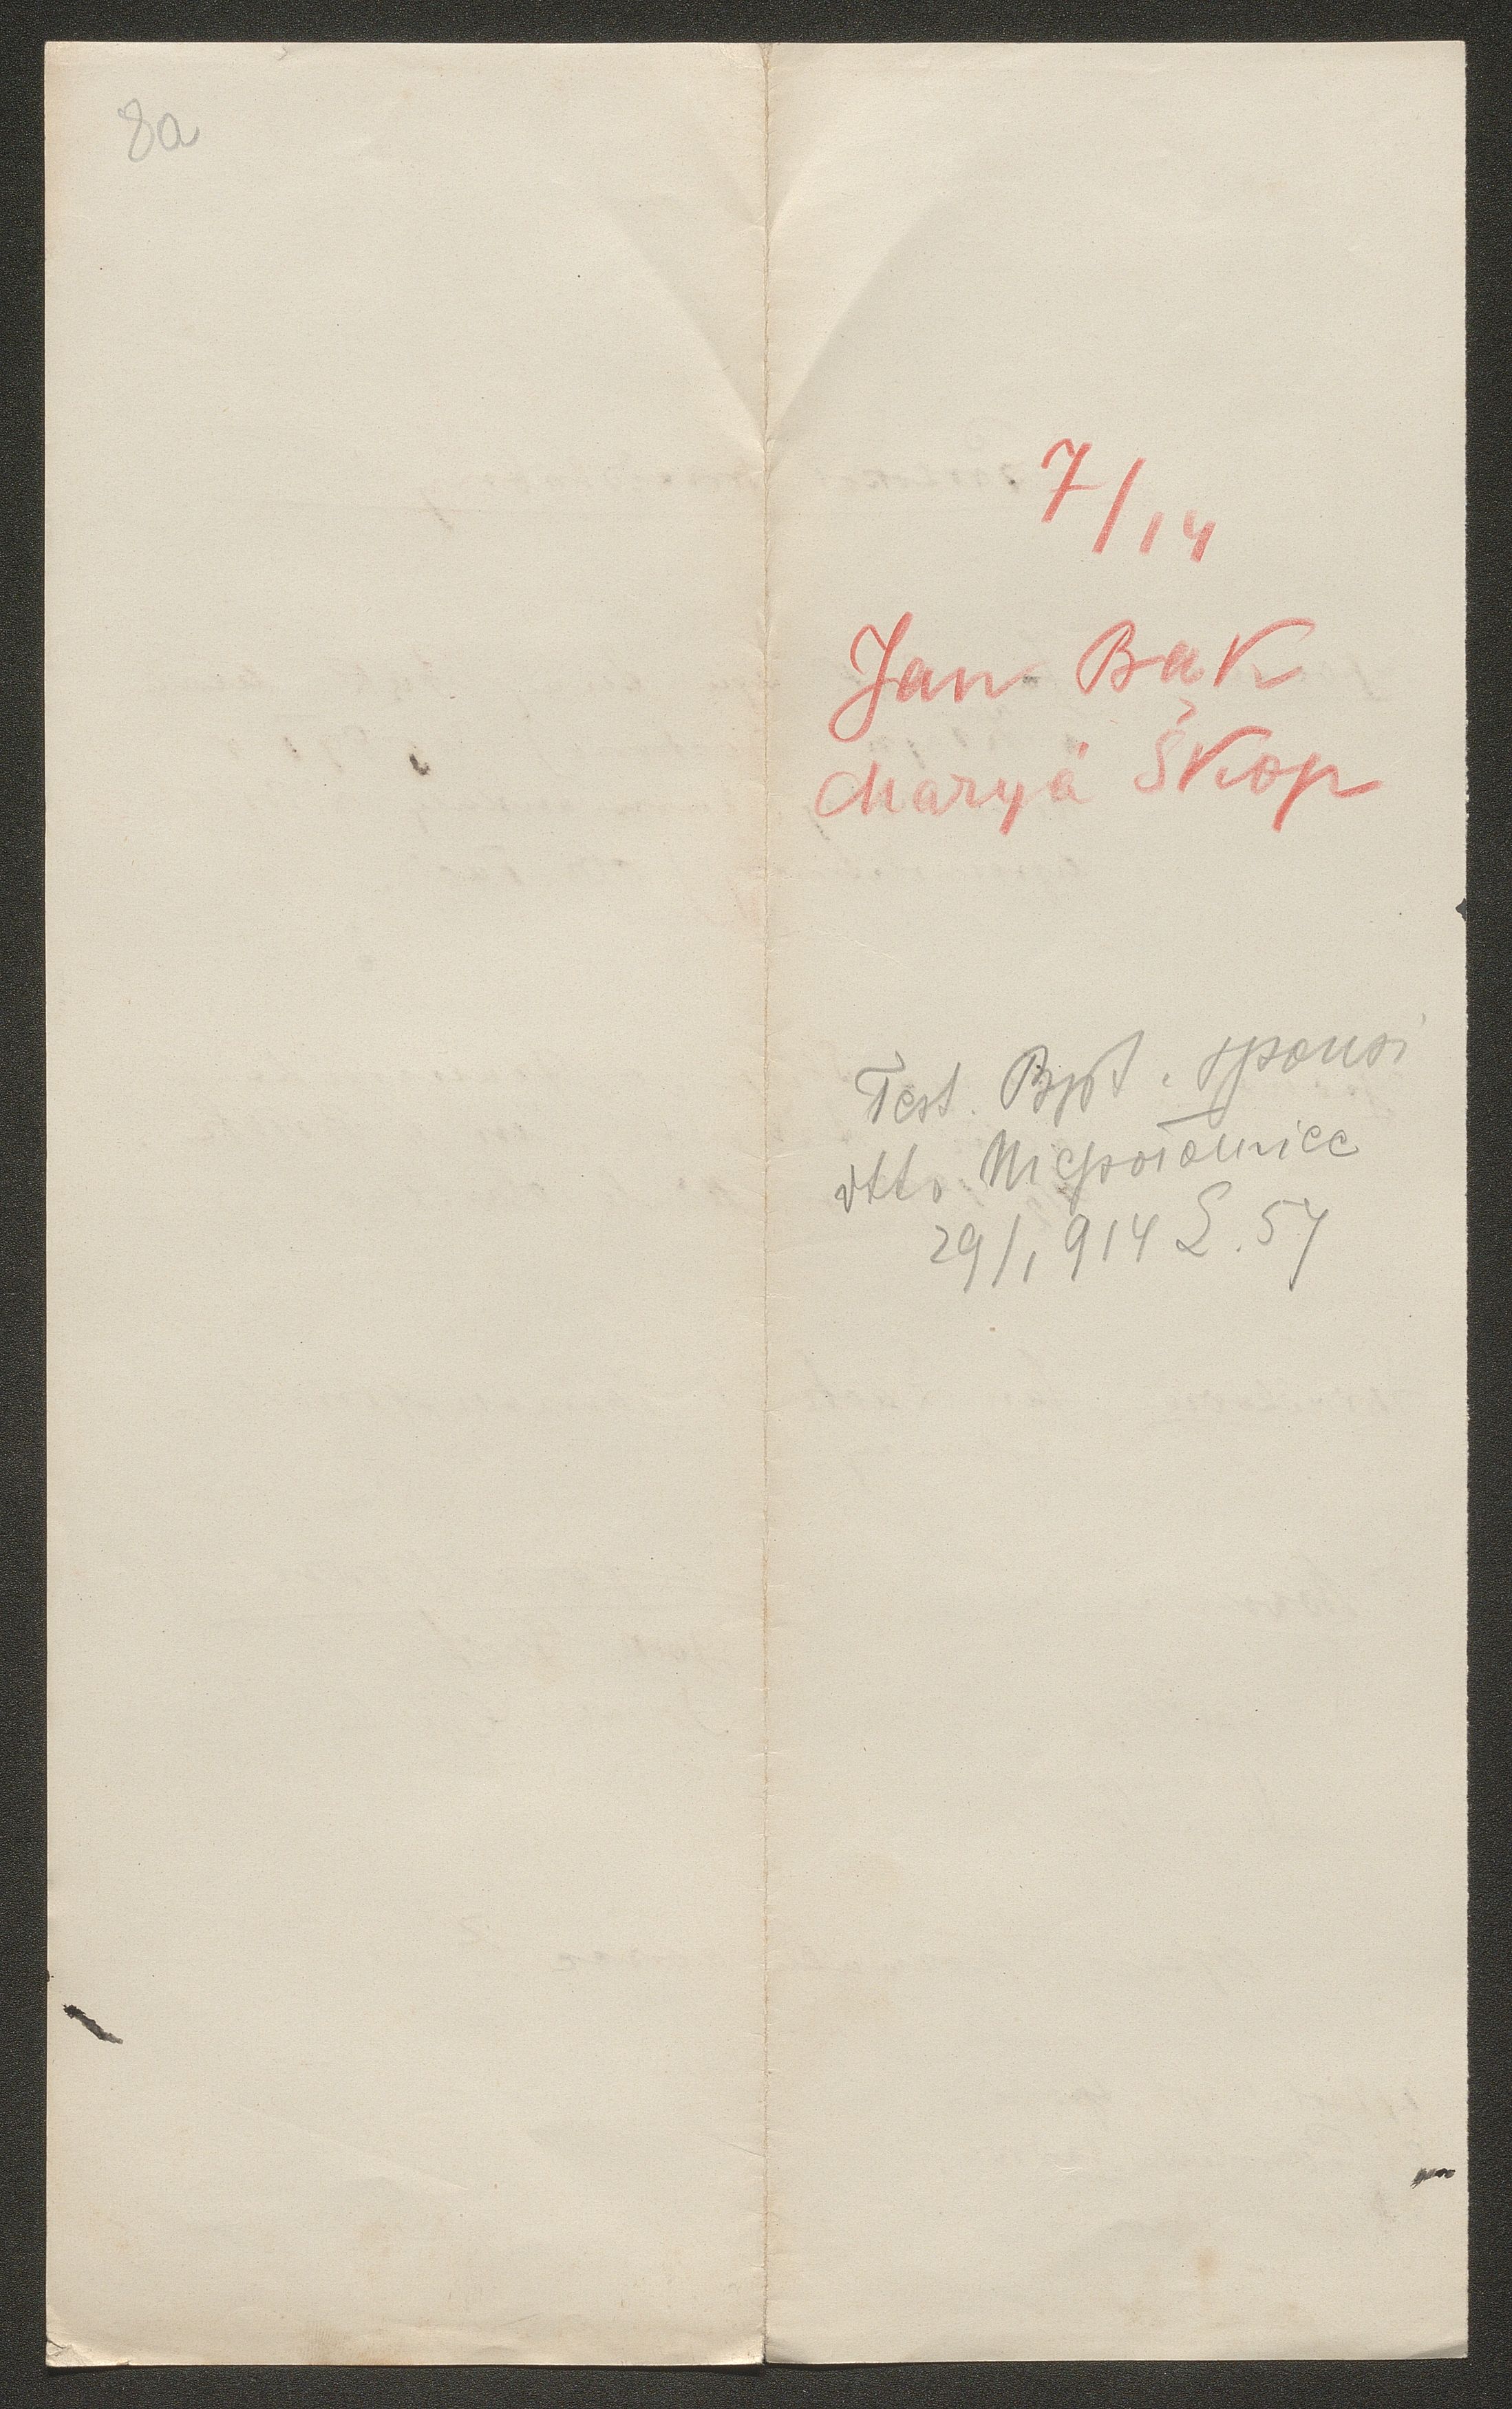 8a
7/14
Jan Bąk
Marya Skop
Test. Bpt. sponsi
dtto Niepołomice
29/1 914 L. 57